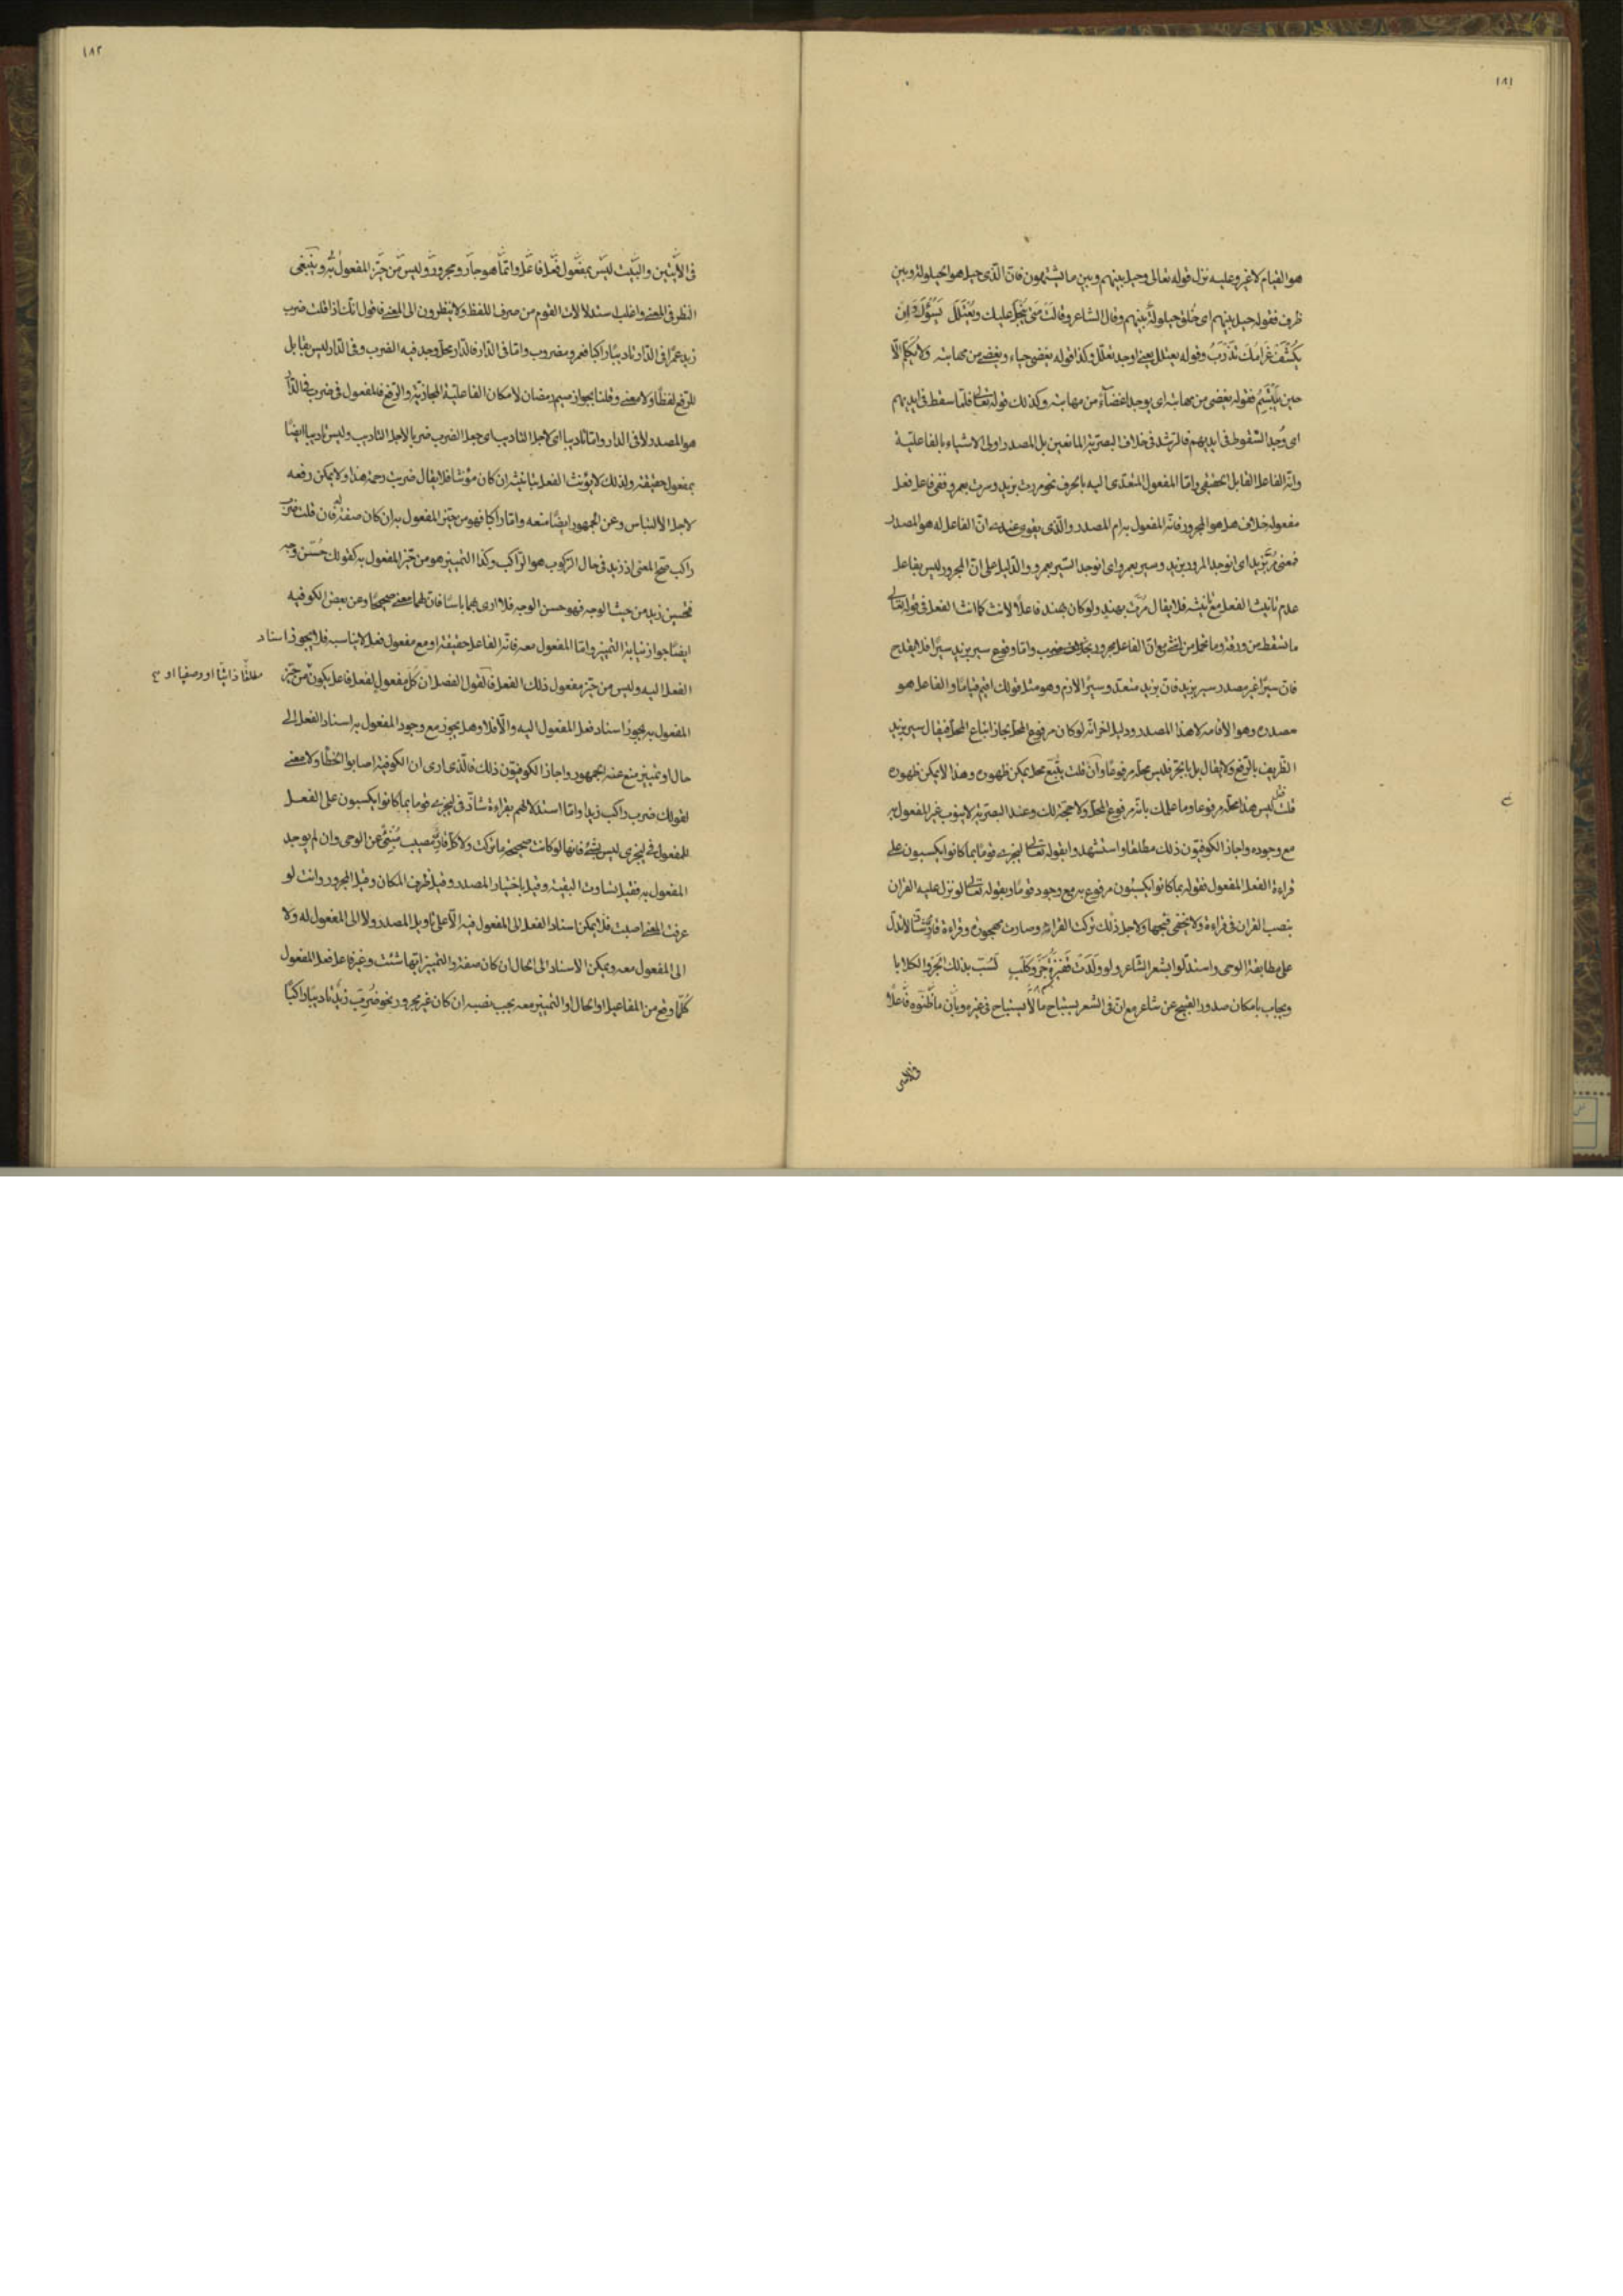 ١٨١
هو القيام لا غير وعليه نزل قوله تعالى وحيل بينهم وبين ما يشتهون فان الذى حيل هو الحيلولة وبين
ظرف فقوله حيل بينهم اى خلق حيلولة بينهم وقال الشاعر وقالت متى يبخل عليك ويعتلل يسؤك وان
يكشف غرامك تدرب وقوله يعتلل يعنى اوجد تعلل وكذا قوله يغضى حياء ويغضى من مهابته ولا يكلم الا
حين يبتسم فقوله يغضى من مهابته اى يوجد اغضاء من مهابته وكذلك قوله تعالى فلما سقط فى ايديهم
اى وجد السقوط فى ايديهم فالرشد فى خلاف البصرية المانعين بل المصدر اولى الاشياء بالفاعلية
وانه الفاعل القابل الحقيقى واما المفعول المتعدى اليه بالحرف نحو مررت بزيد وسرت بعمرو ففى فاعل فعل
مفعوله خلاف هل هو المجرور فانه المفعول به ام المصدر والذى يقوى عندى ان الفاعل له هو المصدر
فمعنى مر بزيد اى انوجد المرور بزيد وسير بعمرو اى انوجد السير بعمرو والدليل على ان المجرور ليس بفاعل
عدم تانيث الفعل مع تانيثه فلا يقال مرت بهند ولو كان بهند فاعلا لانث كما انث الفعل فى قوله تعالى
ما تسقط من ورقة وما تحمل من انثى مع ان الفاعل مجرور بخلاف ضرب واما وقوع سير بزيد سيرا فلا يقدح
فان سيرا غير مصدر سير بزيد فان بزيد متعد وسيرا لازم وهو مثل قولك اقيم قياما والفاعل هو
مصدره وهو الاقامة لا هذا المصدر ودليل اخر انه لو كان مرفوع المحل لجاز اتباع المحل فيقال سير بزيد
الظريف بالرفع ولا يقال بل بالجر فليس محله مرفوعا وان قلت يتبع محل يمكن ظهوره وهذا لا يمكن ظهوره
قلت قبل ليس هذا محله مرفوعا وما علمك بانه مرفوع المحل ولا حجة لك وعند البصرية لا ينوب غير المفعول به
مع وجوده واجاز الكوفيون ذلك مطلقا واستشهدوا بقوله تعالى ليجزى قوما بما كانوا يكسبون على
قراءة الفعل المفعول فقوله بما كانوا يكسبون مرفوع به مع وجود قوما وبقوله تعالى لو نزل عليه القران
بنصب القران فى قراءة ولا يخفى قبحها ولاجل ذلك تركت القراءة وصارت مهجورة وقراءة لا تدل
على مطابقة الوحى واستدلوا بشعر الشاعر ولو ولدت قفيزة جرو كلب لسب بذلك الجرو الكلابا
ويجاب بامكان صدور القبيح عن شاعر مع ان فى الشعر يستباح ما لا يستباح فى غيره وبان ما ظنوه فاعلا
١٨٢
فى الايتين والبيت ليس بمفعول فعل فاعل وانما هو جار ومجرور وليس من حيز المفعول به وينبغى
النظر فى المعنى واغلب استدلالات القوم من صرف اللفظ ولا ينظرون الى المعنى فاقول انك اذا قلت ضرب
زيد عمرا فى الدار تاديبا راكبا فعمرو مضروب واما فى الدار فالدار محل وجد فيه الضرب وفى الدار ليس بقابل
للرفع لفظا ولا معنى وقلنا بجواز سيم رمضان لامكان الفاعلية المجازية والرفع فالمفعول فى ضرب فى الدار
هو المصدر لا فى الدار واما تاديبا اى لاجل التاديب اى جعل الضرب ضربا لاجل التاديب وليس تاديبا ايضا
بمفعول حقيقة ولذلك لا يؤنث الفعل بتانيثه ان كان مؤنثا فلا يقال ضربت رحمة هذا ولا يمكن رفعه
لاجل الالتباس وعن الجمهور ايضا منعه واما راكبا فهو من حيز المفعول به ان كان صفة له فان قلت ضرب
راكب صح المعنى اذ زيد فى حال الركوب هو الراكب وكذا التمييز هو من حيز المفعول به كقولك حسن وجه
فحسين زيد من حيث الوجه فهو حسن الوجه فلا ارى بهما باسا فان لهما معنى صحيحا وعن بعض الكوفية
ايضا جواز نيابة التمييز واما المفعول معه فانه الفاعل حقيقة او مع مفعول فعل لا يناسبه فلا يجوز اسناد
الفعل اليه وليس من حيز مفعول ذلك الفعل فالقول الفصل ان كل مفعول لفعل فاعل يكون من حيز
مطلقا ذاتيا او وصفيا او
المفعول به يجوز اسناد فعل المفعول اليه والا فلا وهل يجوز مع وجود المفعول به اسناد الفعل الى
حال او تمييز منع عنه الجمهور واجاز الكوفيون ذلك فالذى ارى ان الكوفية اصابوا الخطأ ولا معنى
لقولك ضرب راكب زيدا واما استدلالهم بقراءة شاذ فى ليجزى قوما بما كانوا يكسبون على الفعل
للمفعول فى ليجزى ليس بشئ فانها لو كانت صحيحة ما تركت ولا كل قارئ بمصيب منبئ عن الوحى وان لم يوجد
المفعول به فقيل تساوت البقية وقيل باختيار المصدر وقيل ظرف المكان وقيل المجرور وانت لو
عرفت المعنى اصبت فلا يمكن اسناد الفعل الى المفعول فيه الا على تاويل المصدر ولا الى المفعول له ولا
الى المفعول معه ويمكن الاسناد الى الحال ان كان صفة والتمييز ايها شئت وغير فاعل فعل المفعول
كلما وقع من المفاعيل او الحال او التمييز معه يجب نصبه ان كان غير مجرور نحو ضرب زيد تاديبا راكبا